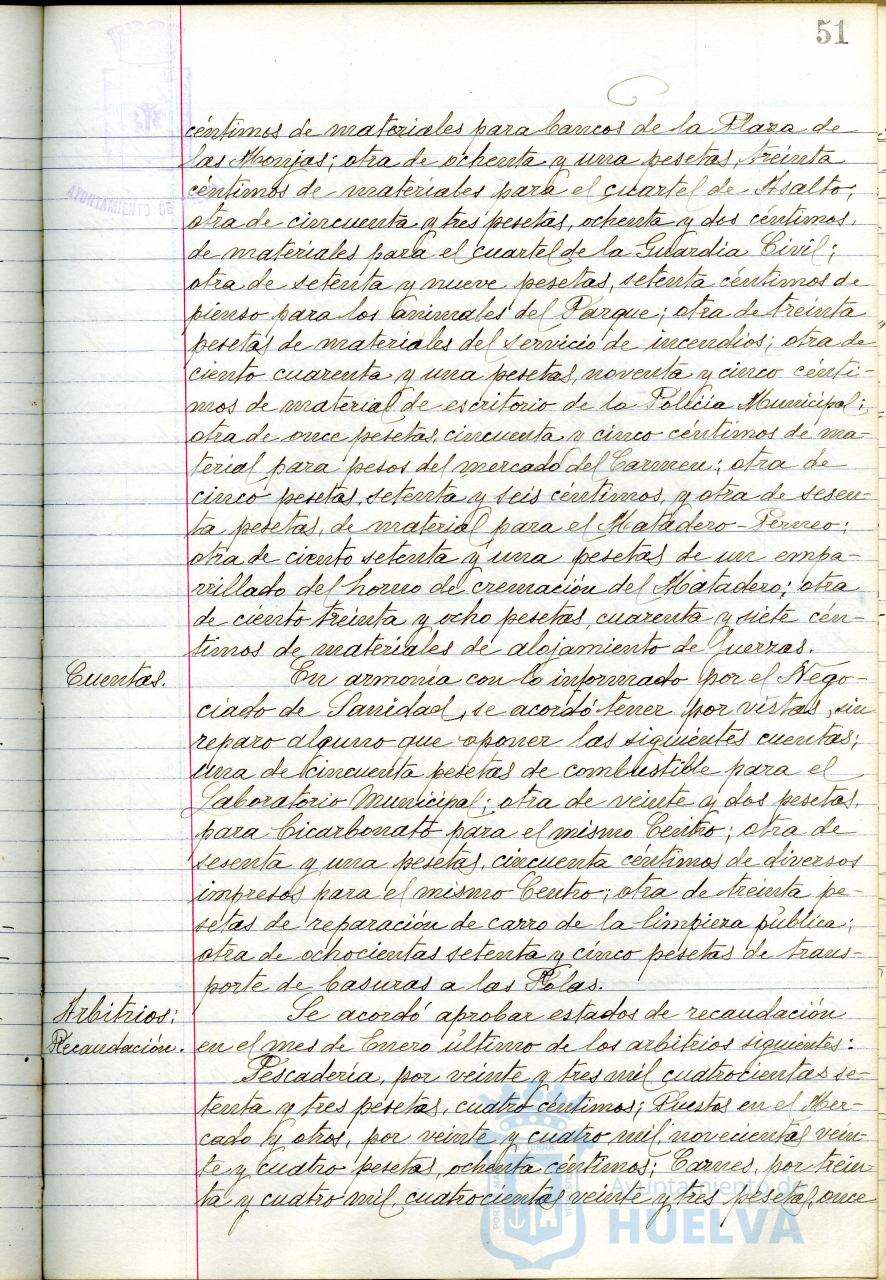 51
céntimos de materiales para bancos de la Plaza de
las Monjas; otra de ochenta y una pesetas, treinta
céntimos de materiales para el cuartel de Asalto;
otra de cincuenta y tres pesetas, ochenta y dos céntimos,
de materiales para el cuartel de la Guardia Civil;
otra de setenta y nueve pesetas, setenta céntimos de
pienso para los animales del Parque; otra de treinta
pesetas de materiales del servicio de incendios; otra de
ciento cuarenta y una pesetas, noventa y cinco cénti-
mos de material de escritorio de la Policía Municipal;
otra de once pesetas, cincuenta y cinco céntimos de ma-
terial para pesos del mercado del Carmen; otra de
cinco pesetas, setenta y seis céntimos, y otra de sesen-
ta pesetas, de material para el Matadero-Perneo;
otra de ciento setenta y una pesetas de un empa-
rrillado del horno de cremación del Matadero; otra
de ciento treinta y ocho pesetas, cuarenta y siete cén-
timos de materiales de alojamiento de fuerzas.
Cuentas. En armonía con lo informado por el Nego-
ciado de Sanidad, se acordó tener por vistas, sin
reparo alguno que oponer las siguientes cuentas;
una de cincuenta pesetas de combustible para el
Laboratorio Municipal; otra de veinte y dos pesetas,
para bicarbonato para el mismo Centro; otra de
sesenta y una pesetas, cincuenta céntimos de diversos
impresos para el mismo Centro; otra de treinta pe-
setas de reparación de carro de la limpieza pública;
otra de ochocientas setenta y cinco pesetas de trans-
porte de basuras a las Rolas.
Arbitrios: Se acordó aprobar estados de recaudación
Recaudación. en el mes de Enero último de los arbitrios siguientes:
Pescadería, por veinte y tres mil cuatrocientas se-
tenta y tres pesetas, cuatro céntimos; Puestos en el Mer-
cado y otros, por veinte y cuatro mil novecientas vein-
te y cuatro pesetas, ochenta céntimos; Carnes, por trein-
ta y cuatro mil cuatrocientas veinte y tres pesetas, once
AYUNTAMIENTO DE
Ayuntamiento de
HUELVA